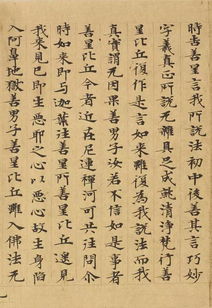 時告善星言我所說法初中後善其言巧妙
字義真正所說无雜具足成就清淨梵行善
星比丘復作是言如來雖復為我說法而我
真實謂无因果善男子汝若不信如是事者
善星比丘今者近在尼連禪河可共往問尒
時如來即与迦葉往善星所善星比丘遙見
我來見已即生惡耶之心以惡心故生身陷
入阿鼻地獄善男子善星比丘雖入佛法无